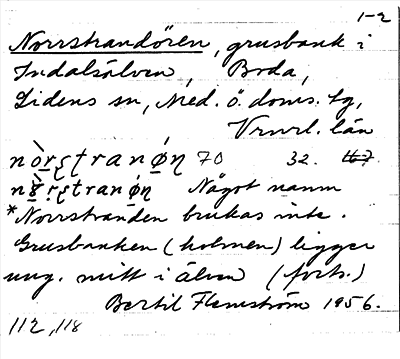 1-2
Norrstrandören, grusbank i
Indalsälven, Boda,
Lidens sn, Med. ö. doms. tg,
Vrnrl. län
70 32.
Något namn
*Norrstranden brukas inte.
Grusbanken (holmen) ligger
ung. mitt i älven (forts.)
Bertil Flemström 1956.
112, 118